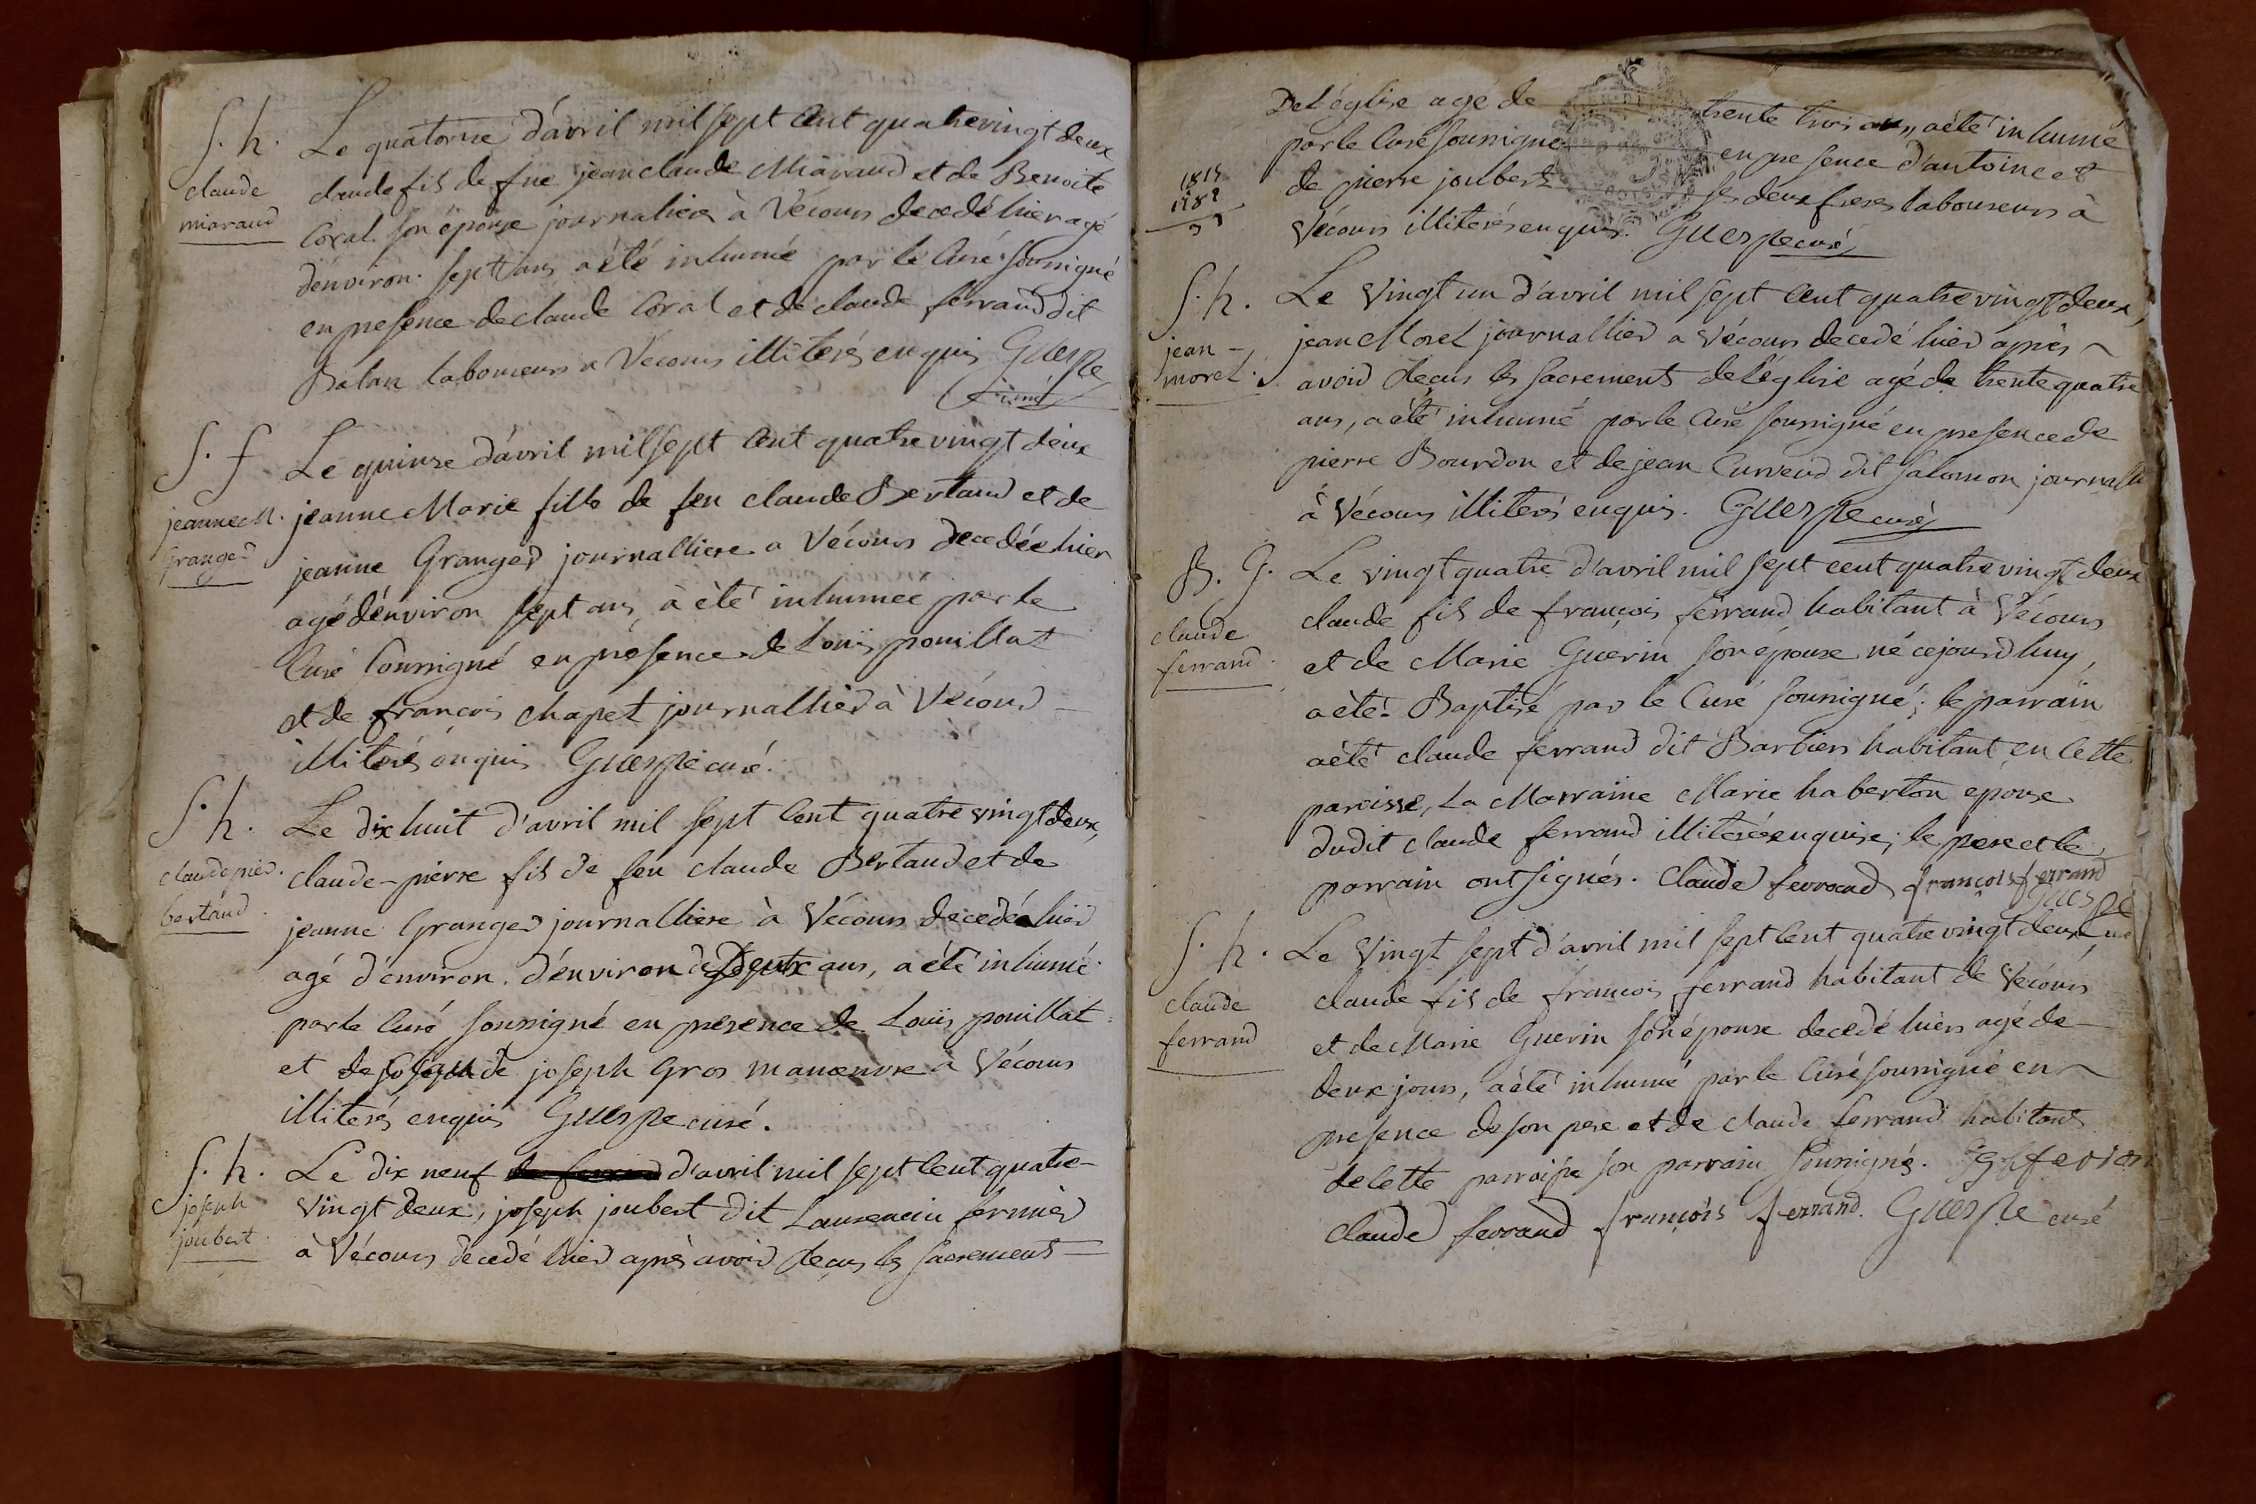 S. h.
claude
miaraud
Le quatorse d'avril mil sept Cent quatre vingt deux
claude fils de fue jean claude Miaraud et de Benoite
Coral son épouse journaliere à Vécours decedé hier agé
d'environ sept ans a été inhumé par le Curé soussigné
en presence de claude Coral et de claude ferrand dit
Balan laboureurs a Vecours illiterés enquis Guespe
curé
S. f
jeanne M.
Granger
Le quinse d'avril mil sept Cent quatre vingt deux
jeanne Marie fille de feu claude Bertaud et de
jeanne Granger journalliere a Vécours decedée hier
agé d'environ sept ans, à été inhumee par le
Curé soussigné en présence de Louis pouillat
et de francois chapet journallier à Vécour
illiterés enquis Guespe curé.
S. h.
claude pier.
bertaud.
Le dix huit d'avril mil sept Cent quatre vingt deux,
claude-pierre fils de feu claude Bertaud et de
jeanne Granger journalliere à Vécours decedé hier
agé d'environ. d'environ de ans, a été inhumé
par le Curé soussigné en presence de Louis pouillat
et de joseph Gros manœuvre a Vécours
illiterés enquis Guespe curé.
S. h.
joseph
joubert.
Le dix neuf d'avril mil sept Cent quatre-
vingt deux, joseph joubert dit Laurencin fermier
à Vécours decedé hier après avoir reçus les sacrements
De l'église agé de trente trois ans, a été inhumé
par le Curé soussigné en presence d'antoine et
de pierre joubert ses deux freres laboureurs à
Vécours illiterés enquis. Guespe curé
S. h.
jean
morel.
Le Vingt un d'avril mil sept Cent quatre vingt deux,
jean Morel journallier a Vécours decedé hier après
avoir reçus les sacrements de l'église agé de trente quatre
ans, a été inhumé par le Curé soussigné en presence de
pierre Bourdon et de jean Curveur dit salomon journall
à Vécours illiterés enquis. Guespe curé
B. G.
claude
ferrand.
Le vingt quatre d'avril mil sept cent quatre vingt deux
claude fils de françois ferrand habitant à Vécours
et de Marie Guerin son épouse né cejourd huy,
a été Baptisé par le Curé soussigné; le parrain
a été claude ferrand dit Barbier habitant en Cette
paroisse, La Marraine Marie haberton epouse
dudit claude ferrand illiterée enquise; le pere et le
parrain ont signés. Claude ferrand françois ferrand
Guespe
curé
S. h.
claude
ferrand
Le Vingt sept d'avril mil sept Cent quatre vingt deux
claude fils de francois ferrand habitant de Vécours
et de Marie Guerin son épouse decedé hier agé de
deux jours, a été inhumé par le Curé soussigné en
presence de son pere et de claude ferrand habitant
de Cette parroisse son parrain soussignés.
claude ferrand françois ferrand. Guespe curé